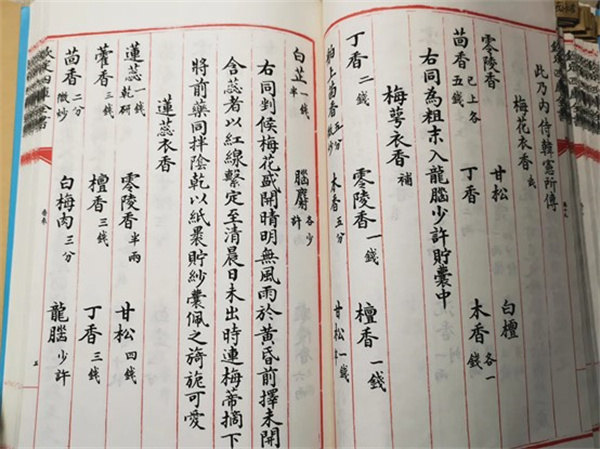 此乃內侍韓憲所傳
梅花衣香 武
零陵香 甘松 白檀
茴香 已上各五錢 丁香 木香 各一錢
右同為粗末入龍腦少許貯囊中
梅蕚衣香 補
丁香 二錢 零陵香 一錢 檀香 一錢
舶上茴香 五分微炒 木香 五分 甘松 一錢半
白芷 一錢半 腦麝 各少許
右同剉候梅花盛開晴明無風雨於黃昏前擇未開
含蕊者以紅線繫定至清晨日未出時連梅蒂摘下
將前藥同拌陰乾以紙裹貯紗囊佩之旖旎可愛
蓮蕊衣香
蓮蕊 一錢乾研 零陵香 半兩 甘松 四錢
藿香 三錢 檀香 三錢 丁香 三錢
茴香 二分微炒 白梅肉 三分 龍腦 少許
欽定四庫全書 香乘 五